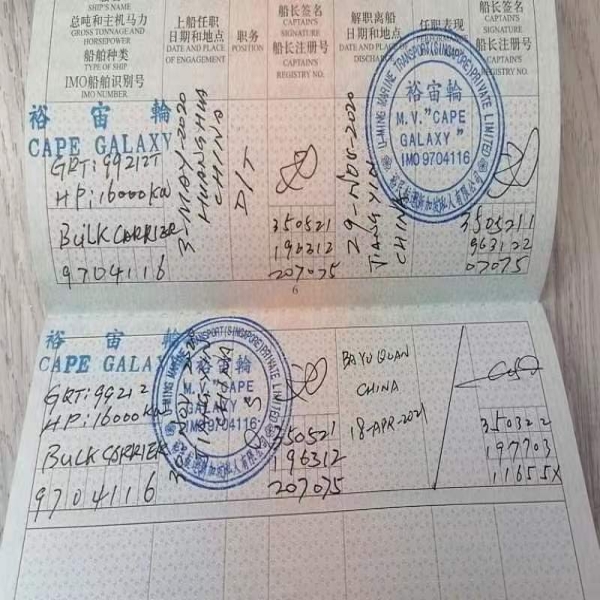 船名
SHIP'S NAME
总吨和主机马力
GROSS TONNAGE AND HORSEPOWER
船舶种类
TYPE OF SHIP
IMO船舶识别号
IMO NUMBER
上船任职
日期和地点
DATE AND PLACE OF ENGAGEMENT
职务
POSITION
船长签名
CAPTAIN'S SIGNATURE
船长注册号
CAPTAIN'S REGISTRY NO.
解职离船
日期和地点
DATE AND PLACE OF
任职表现
船长签名
CAPTAIN'S SIGNATURE
船长注册号
CAPTAIN'S REGISTRY NO.
裕宙輪
CAPE GALAXY
GRT: 99212T
HP: 16000KW
BULK CARRIER
9704116
3-MAY-2020
HUANGHUA
CHINA
D/T
350521
196312
207075
29-NOV-2020
JIANGYIN
CHINA
U-MING MARINE TRANSPORT(SINGAPORE)PRIVATE LIMITED
裕宙輪
M.V."CAPE
GALAXY"
IMO 9704116
3505211
963122
07075
6
裕宙輪
CAPE GALAXY
GRT: 99212
HP: 16000KW
BULK CARRIER
9704116
U-MING MARINE TRANSPORT(SINGAPORE)PRIVATE LIMITED
M.V. "CAPE
GALAXY
9704116
350521
196312
207075
BAYUQUAN
CHINA
18-APR-2021
350322
197703
11655X